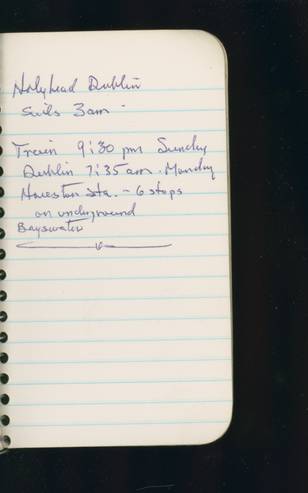 Holyhead Dublin
Sails 3am
Train 9:30 pm Sunday
Dublin 7:35 am. Monday
Houston Sta. - 6 stops
on underground
Bayswater